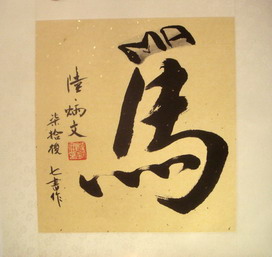 馬
陸炳文
柒拾後
七書作